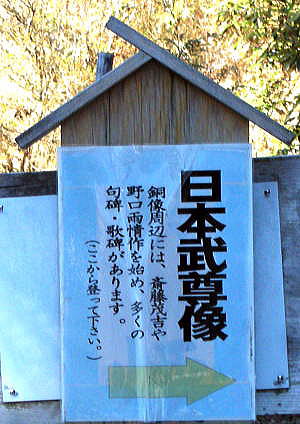 日本武尊像
銅像周辺には、斎藤茂吉や
野口雨情作を始め、多くの
句碑・歌碑があります。
(ここから登って下さい。)